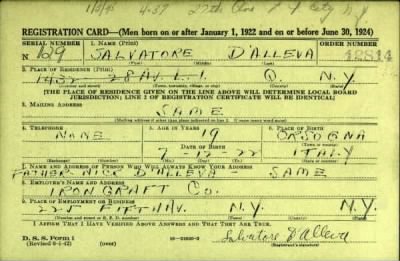 4-37 27th
REGISTRATION CARD—(Men born on or after January 1, 1922 and on or before June 30, 1924)
SERIAL NUMBER 1. NAME (Print) ORDER NUMBER
N 129 SALVATORE D'ALLEVA 12814
(First) (Middle) (Last)
2. PLACE OF RESIDENCE (Print)
1432 28 AV. L. I. Q. N.Y.
(Number and street) (Town, township, village, or city) (County) (State)
[THE PLACE OF RESIDENCE GIVEN ON THE LINE ABOVE WILL DETERMINE LOCAL BOARD
JURISDICTION; LINE 2 OF REGISTRATION CERTIFICATE WILL BE IDENTICAL]
3. MAILING ADDRESS
SAME
[Mailing address if other than place indicated on line 2. If same insert word same]
4. TELEPHONE 5. AGE IN YEARS 6. PLACE OF BIRTH
NONE 19 ORSOGNA
DATE OF BIRTH (Town or county)
7-12-22 ITALY
(Exchange) (Number) (Mo.) (Day) (Yr.) (State or country)
7. NAME AND ADDRESS OF PERSON WHO WILL ALWAYS KNOW YOUR ADDRESS
FATHER NICK D'ALLEVA - SAME
8. EMPLOYER'S NAME AND ADDRESS
IRON CRAFT CO.
9. PLACE OF EMPLOYMENT OR BUSINESS
225 FIFTH AV. N.Y. N.Y.
(Number and street or R. F. D. number) (Town) (County) (State)
I AFFIRM THAT I HAVE VERIFIED ABOVE ANSWERS AND THAT THEY ARE TRUE.
D. S. S. Form 1
(Revised 6-1-42) (over) Salvatore D'Alleva